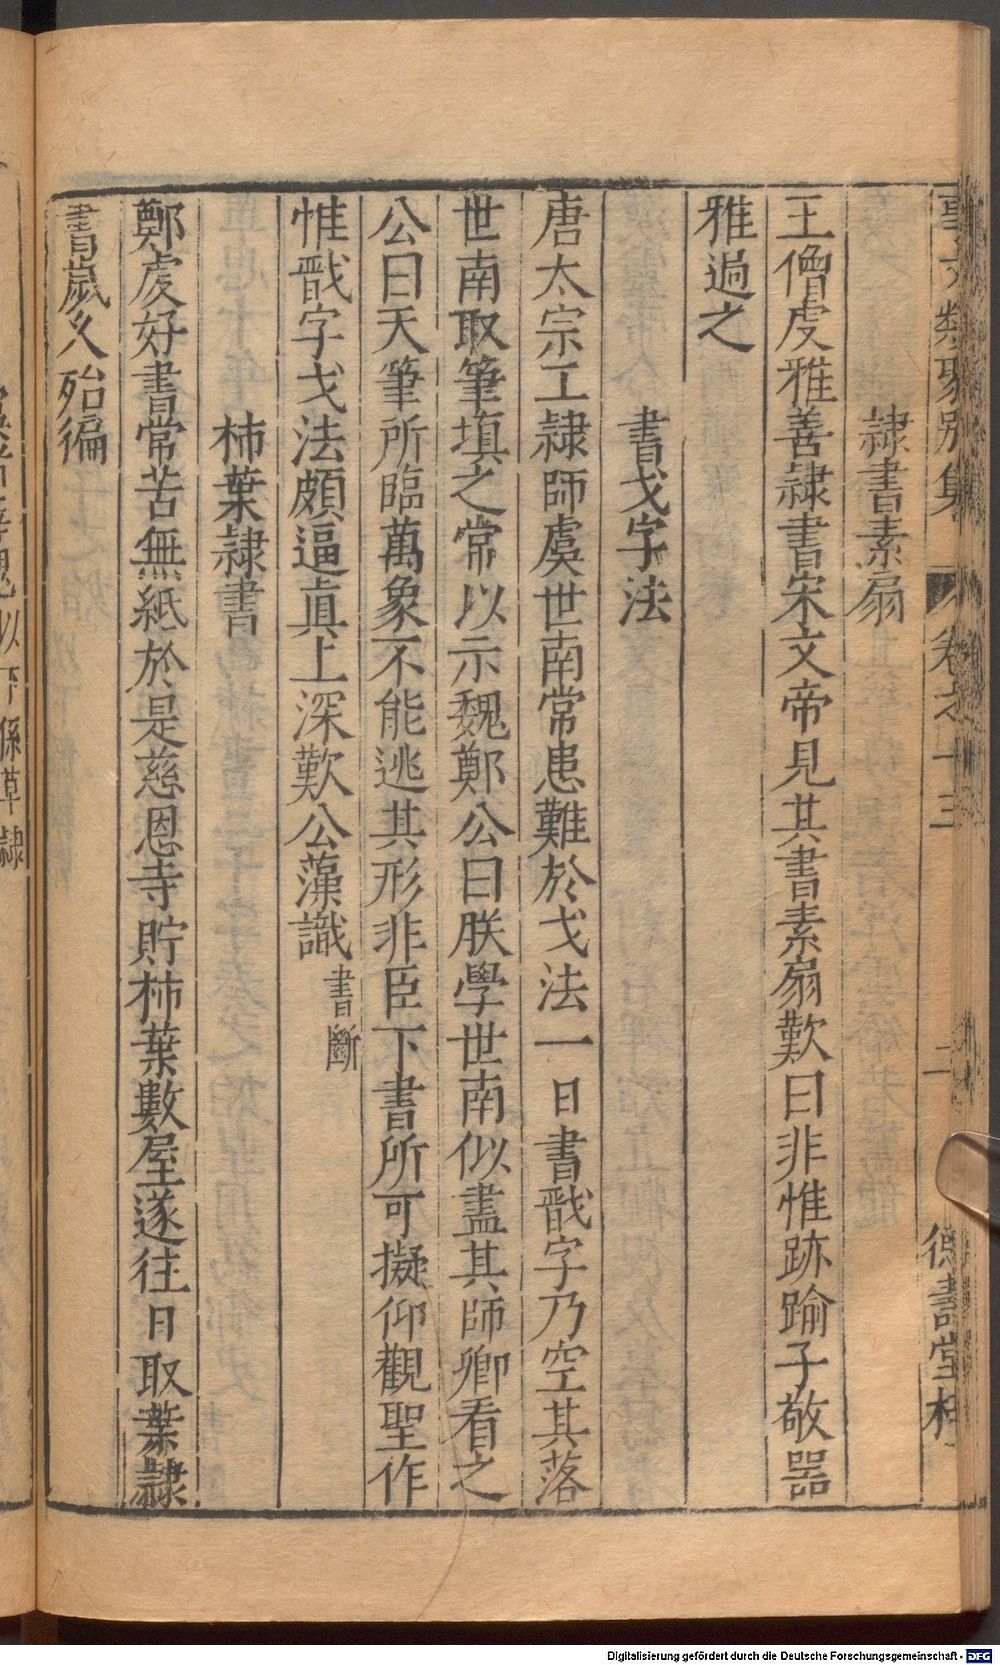 事文類聚別集 卷之十三 二 德壽堂梓
隷書素扇
王僧虔雅善隷書宋文帝見其書素扇歎曰非惟跡踰子敬器
雅過之
書戈字法
唐太宗工隷師虞世南常患難於戈法一日書戩字乃空其落
世南取筆填之常以示魏鄭公曰朕學世南似盡其師卿看之
公曰天筆所臨萬象不能逃其形非臣下書所可擬仰觀聖作
惟戩字戈法頗逼真上深歎公藻識書斷
柿葉隷書
鄭虔好書常苦無紙於是慈恩寺貯柿葉數屋遂往日取葉隷
書歲久殆徧
以下係草隷
Digitalisierung gefördert durch die Deutsche Forschungsgemeinschaft - DFG